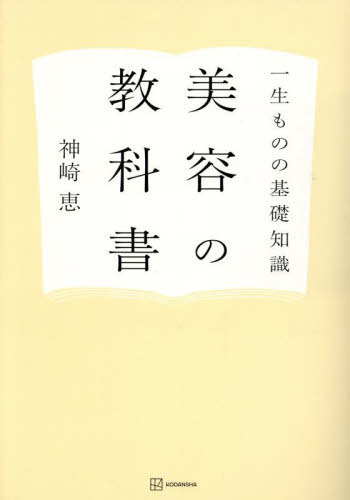 一生ものの基礎知識
美容の
教科書
神崎 恵
KODANSHA